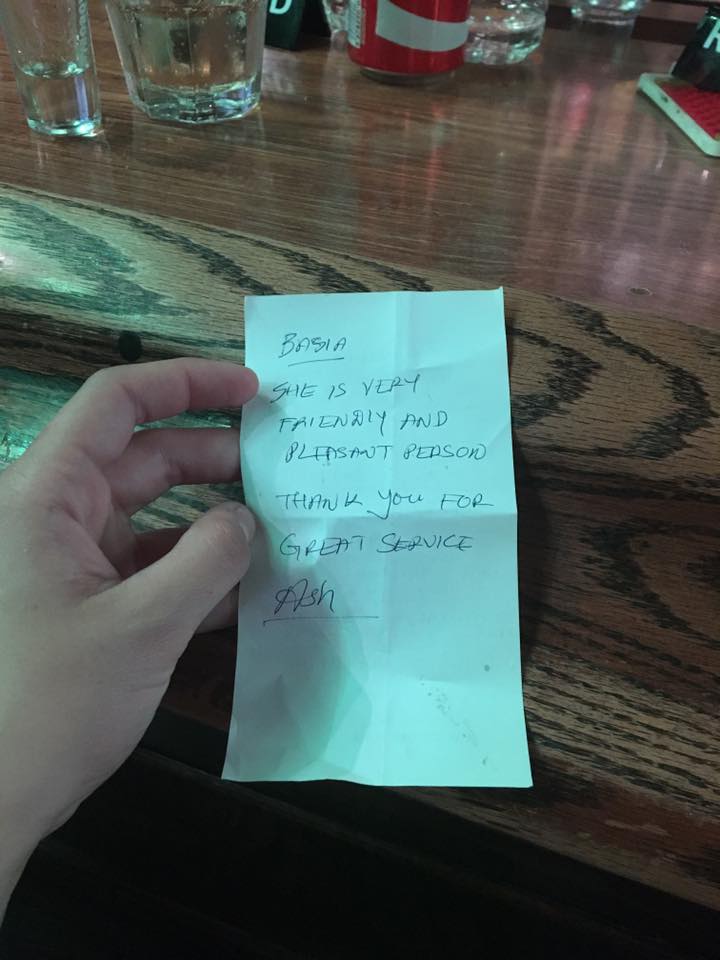 D
R
BASIA
SHE IS VERY
FRIENDLY AND
PLEASANT PERSON
THANK you FOR
GREAT SERVICE
Ash